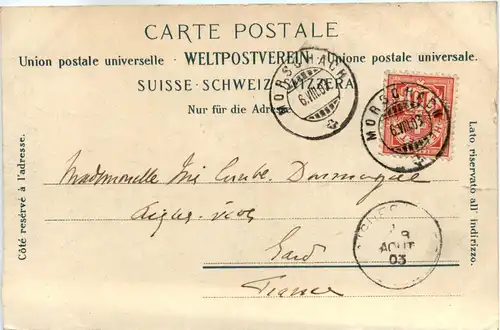 CARTE POSTALE
Union postale universelle · WELTPOSTVEREIN · Unione postale universale.
SUISSE · SCHWEIZ · SVIZZERA
Nur für die Adresse
Côté resérvé à l'adresse.
Lato riservato all' indirizzo.
MORSCHACH
6.VIII.03
MORSCHACH
6.VIII.03
10
Mademoiselle
Gard
France
8
AOUT
03